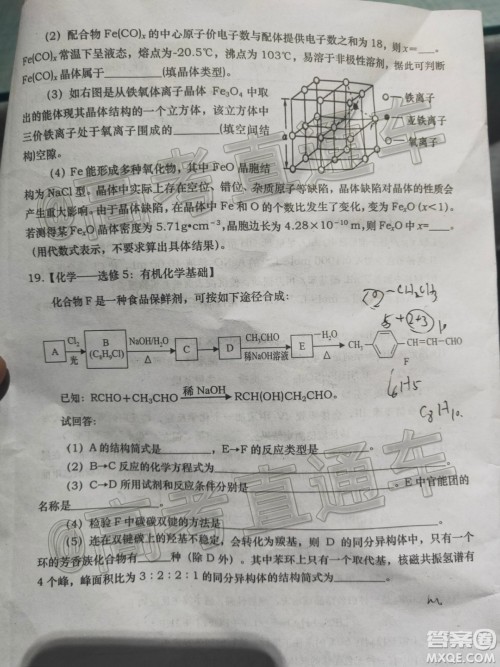 (2) 配合物 Fe(CO)x 的中心原子价电子数与配体提供电子数之和为 18，则 x=___。
Fe(CO)x 常温下呈液态，熔点为-20.5℃，沸点为 103℃，易溶于非极性溶剂，据此可判断
Fe(CO)x 晶体属于________(填晶体类型)。
(3) 如右图是从铁氧体离子晶体 Fe3O4 中取
出的能体现其晶体结构的一个立方体，该立方体中
三价铁离子处于氧离子围成的________(填空间结
构)空隙。
○—铁离子
●—亚铁离子
○—氧离子
(4) Fe 能形成多种氧化物，其中 FeO 晶胞结
构为 NaCl 型。晶体中实际上存在空位、错位、杂质原子等缺陷，晶体缺陷对晶体的性质会
产生重大影响。由于晶体缺陷，在晶体中 Fe 和 O 的个数比发生了变化，变为 FexO (x＜1)。
若测得某 FexO 晶体密度为 5.71g•cm-3，晶胞边长为 4.28×10-10 m，则 FexO 中 x=____。
(用代数式表示，不要求算出具体结果)。
19.【化学——选修 5：有机化学基础】
化合物 F 是一种食品保鲜剂，可按如下途径合成：
-CH2CH3
5+(2+3)
A Cl2 光 B (C8H9Cl) NaOH/H2O △ C D CH3CHO 稀NaOH溶液 E -H2O △ CH3- -CH=CH-CHO
F
C6H5
C8H10
已知：RCHO+CH3CHO 稀 NaOH RCH(OH)CH2CHO。
试回答：
(1) A 的结构简式是________，E→F 的反应类型是________。
(2) B→C 反应的化学方程式为________
(3) C→D 所用试剂和反应条件分别是________。E 中官能团的
名称是________。
(4) 检验 F 中碳碳双键的方法是________
(5) 连在双键碳上的羟基不稳定，会转化为羰基，则 D 的同分异构体中，只有一个
环的芳香族化合物有____种（除 D 外）。其中苯环上只有一个取代基，核磁共振氢谱有
4 个峰，峰面积比为 3：2：2：1 的同分异构体的结构简式为________。
@高考直通车
@高考直通车
答案圈
MXQE.COM